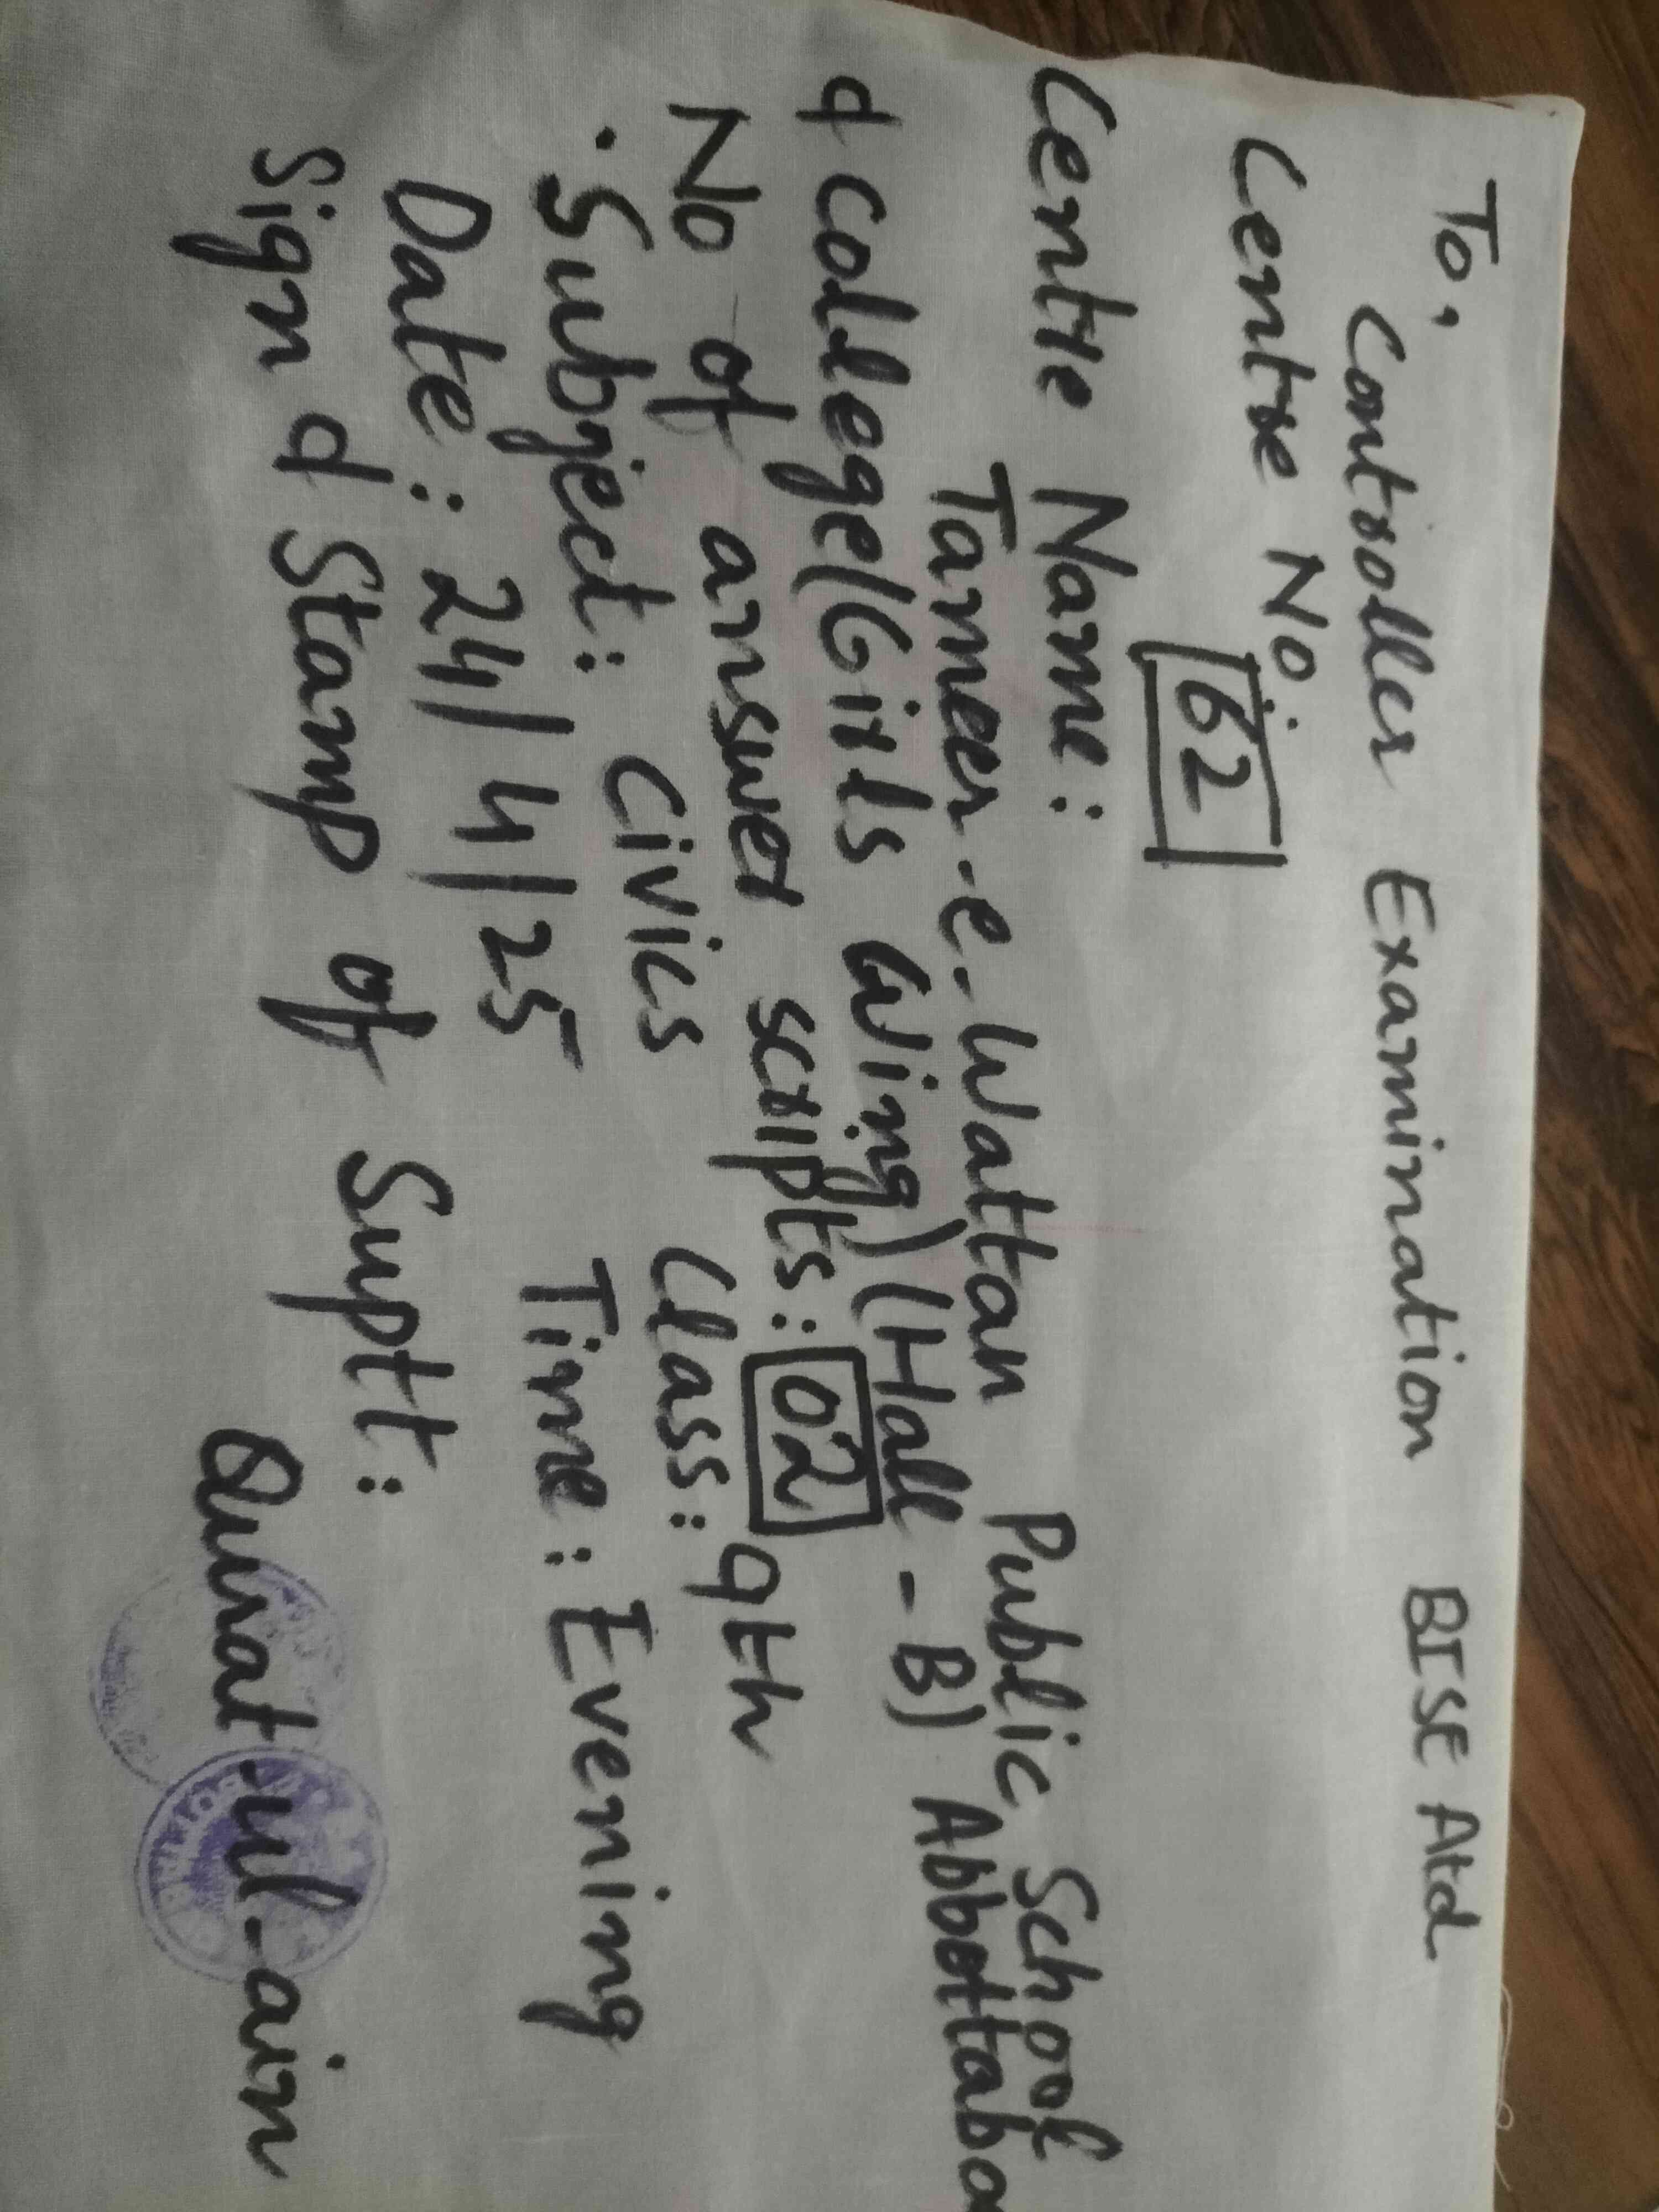 To,
Controller Examination BISE Atd
Centre No:
62
Centre Name:
Tameer-e-Wattan Public School
& College(Girls Wing)(Hall-B) Abbottaba
No of answer scripts: 02
Subject: Civics Class: 9th
Date: 24/4/25 Time: Evening
Sign & Stamp of Suptt:
Qurat-ul-ain